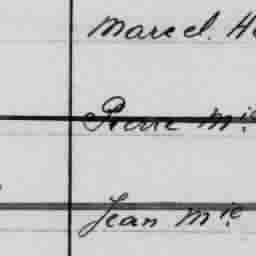 Marcel. H
Pierre Mie.
Jean Mie.